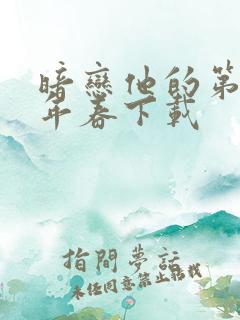 暗戀他的第
年春下載
指間夢話
未經同意禁止轉載